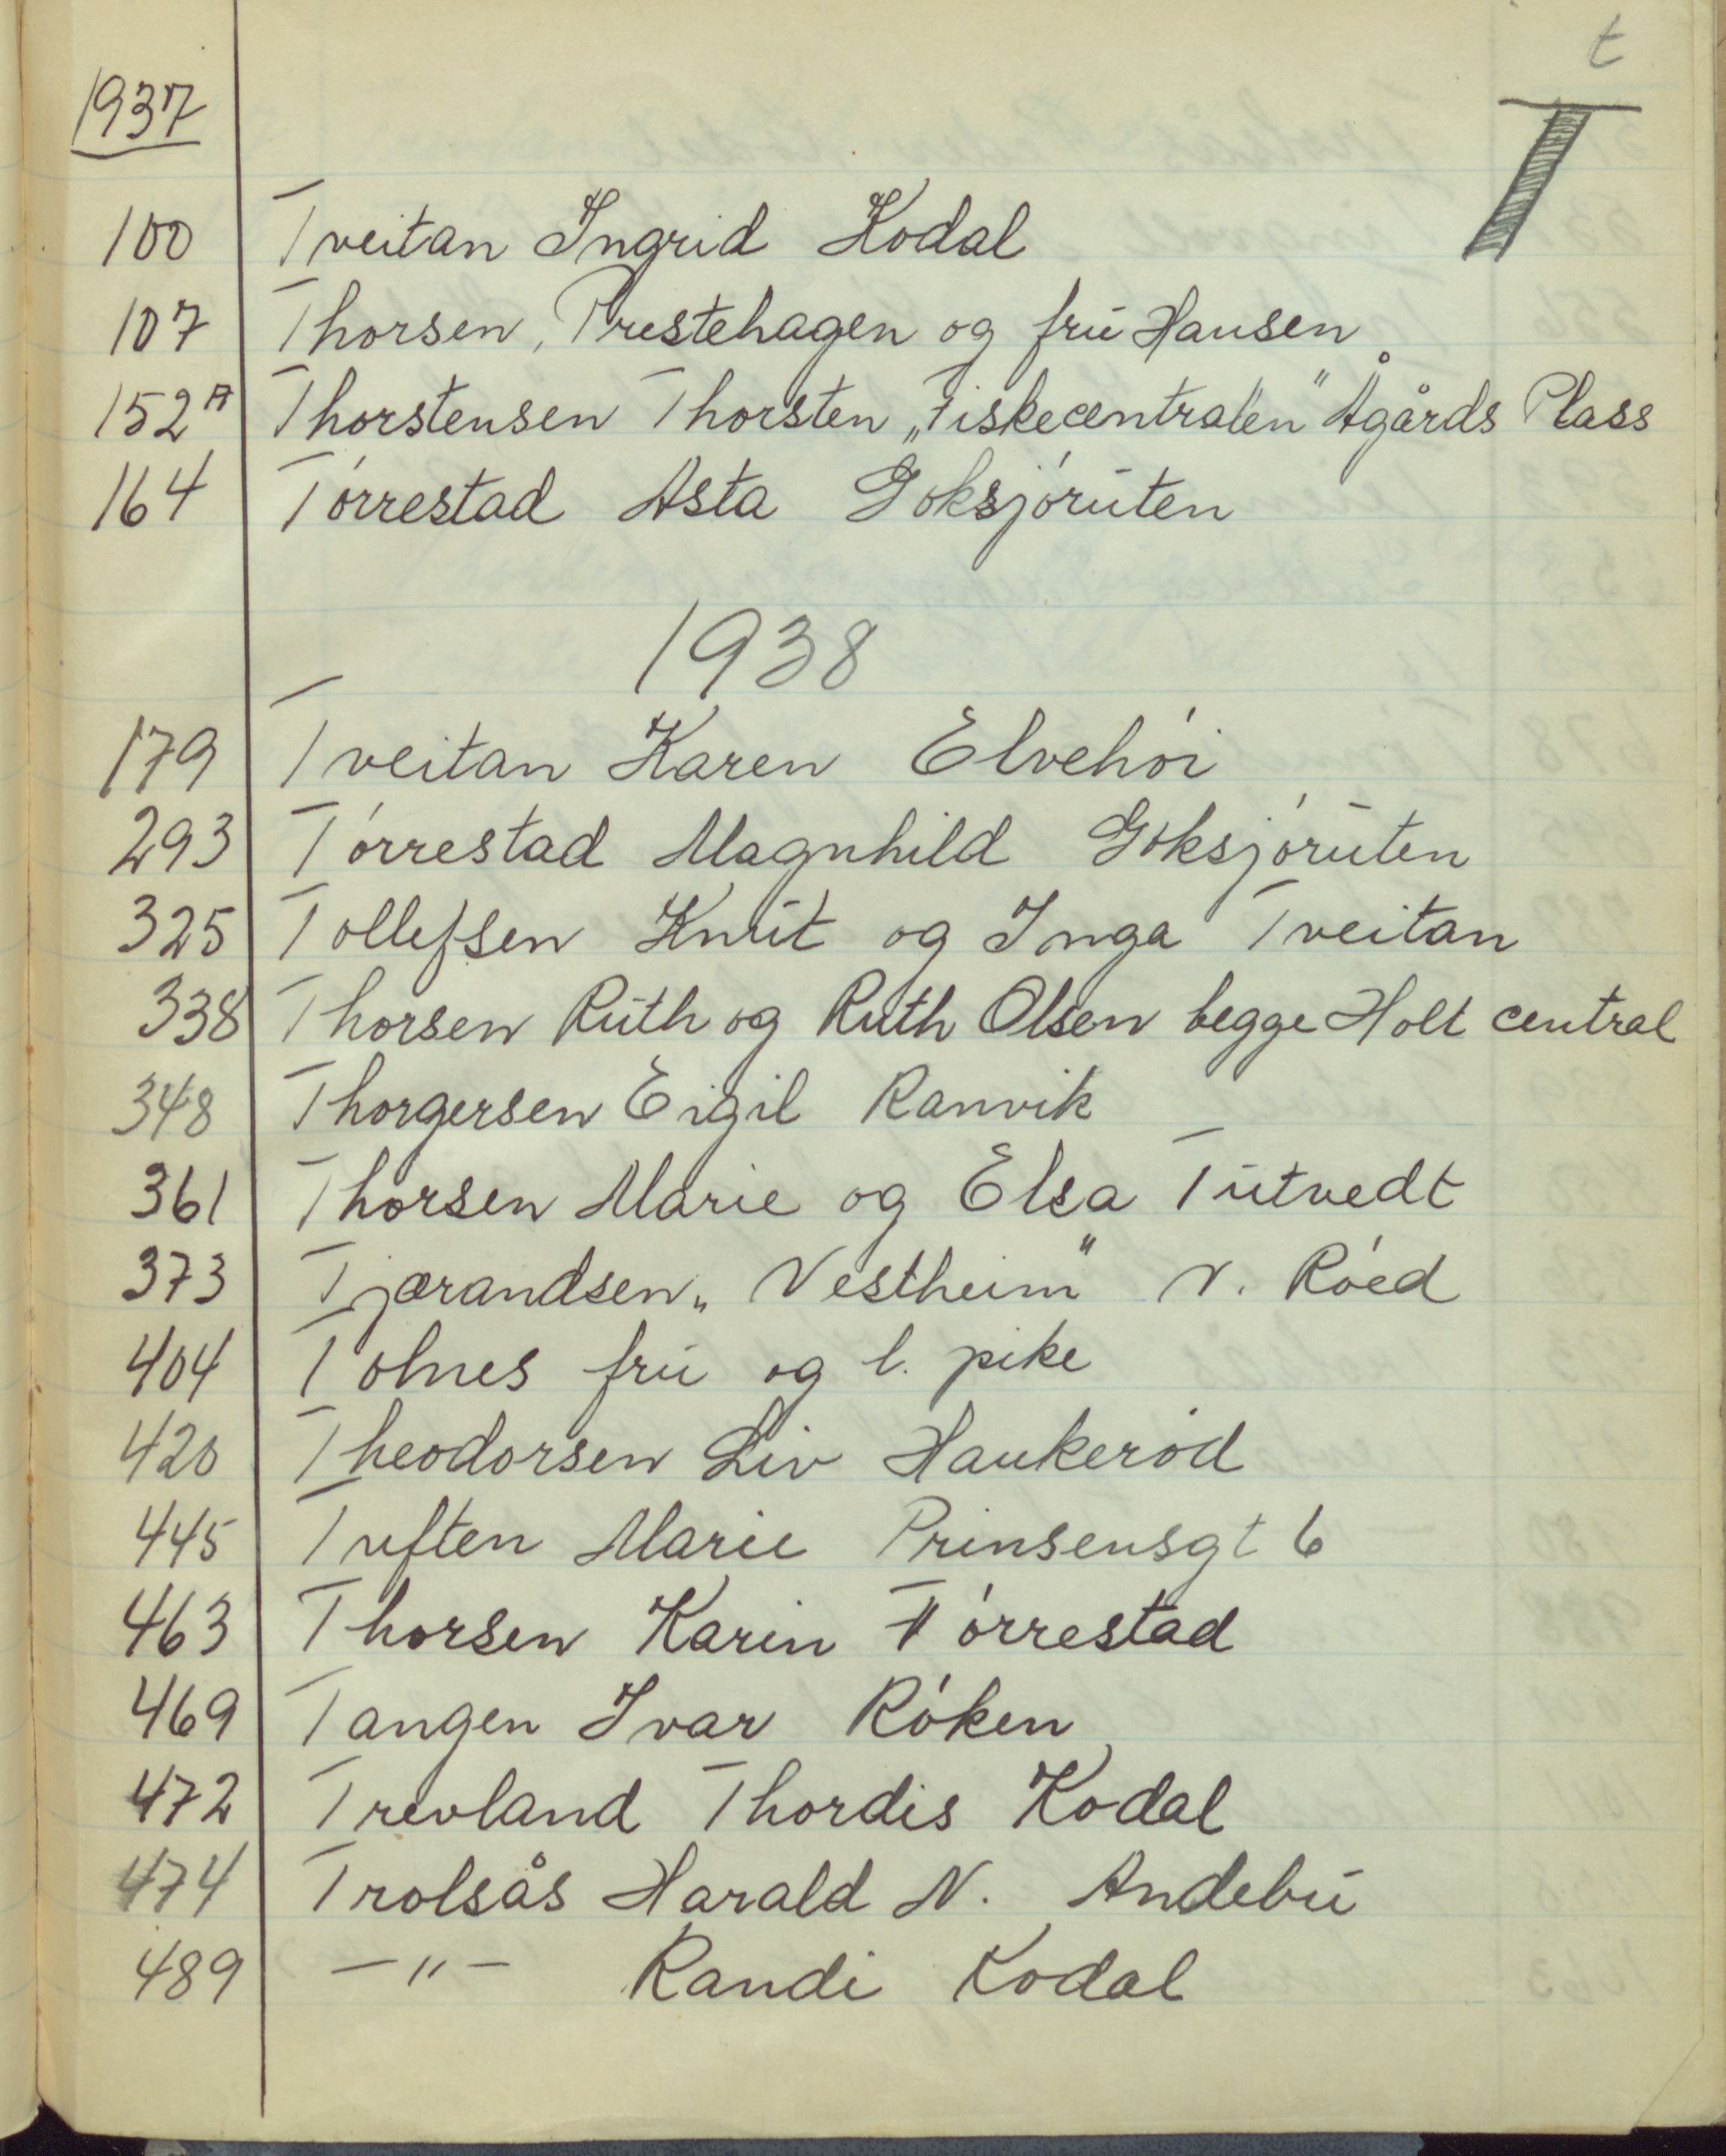 t
1937
T
100 Tveitan Ingrid Kodal
107 Thorsen, Prestehagen og fru Hansen
152A Thorstensen Thorsten „Fiskecentralen" Ågårds Plass
164 Tórrestad Asta Goksjóruten
1938
179 Tveitan Karen Elvehói
293 Tórrestad Magnhild Goksjóruten
325 Tollefsen Knut og Inga Tveitan
338 Thorsen Ruth og Ruth Olsen begge Holt central
348 Thorgersen Eigil Ranvik
361 Thorsen Marie og Elsa Tutvedt
373 Tjærandsen „Vestheim" N. Róed
404 Tolnes fru og l. pike
420 Theodorsen Liv Haukeród
445 Tuften Marie Prinsensgt 6
463 Thorsen Karin Tórrestad
469 Tangen Ivar Róken
472 Trevland Thordis Kodal
474 Trolsås Harald N. Andebu
489 -"- Randi Kodal